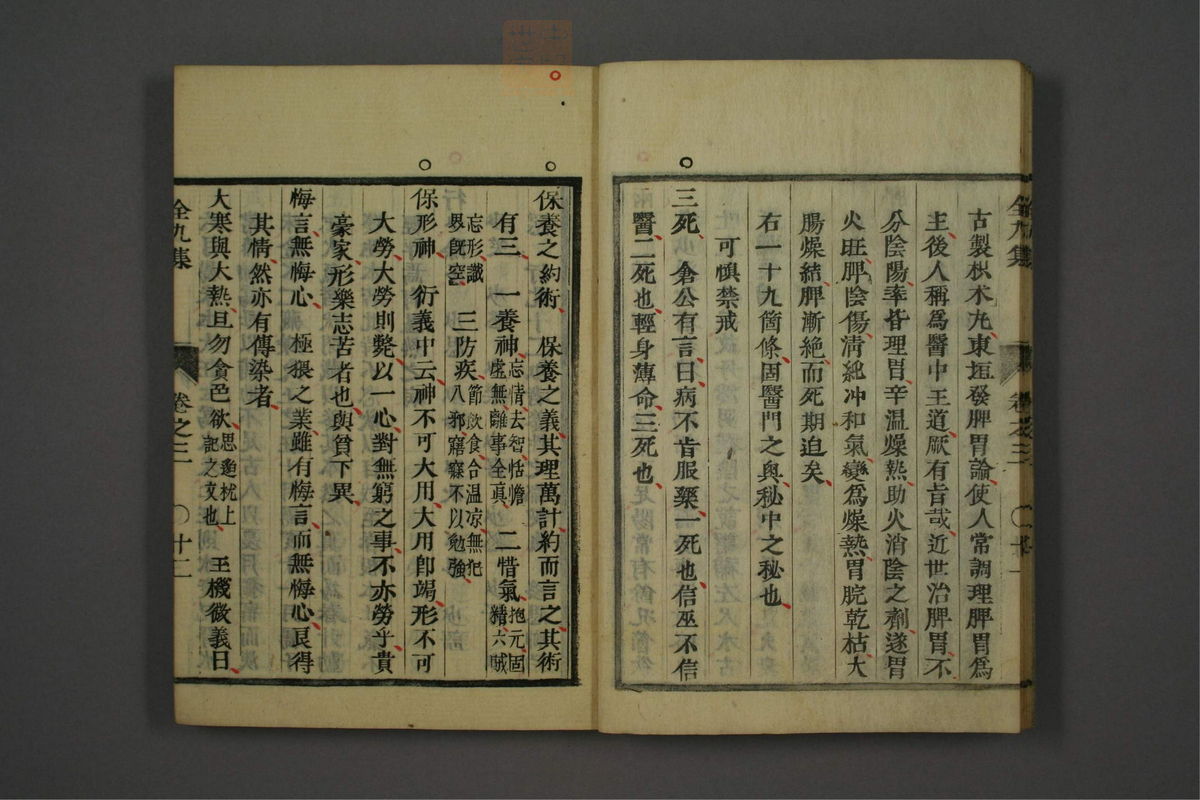 古製枳朮丸東垣發脾胃論使人常調理脾胃爲
主後人稱爲醫中王道厥有旨哉近世治脾胃不
分陰陽率皆理胃辛温燥熱助火消陰之劑遂胃
火旺脾陰傷清純冲和氣變爲燥熱胃脘乾枯大
腸燥結脾漸絶而死期迫矣
右一十九箇條固醫門之奥秘中之秘也
可愼禁戒
三死 倉公有言曰病不肯服藥一死也信巫不信
醫二死也輕身薄命三死也
全九集 卷之三 〇十一
保養之約術 保養之義其理萬計約而言之其術
有三 一養神忘情去智恬憺虛無離事全眞 二惜氣抱元固精六賊
忘形識界旣空 三防疾節飮食合温凉無犯八邪寤寐不以勉強
保形神 衍義中云神不可大用大用卽竭形不可
大勞大勞則斃以一心對無窮之事不亦勞乎貴
豪家形樂志苦者也與貧下異
悔言無悔心 極猥之業雖有悔言而無悔心艮得
其情然亦有傳染者
大寒與大熱且勿貪色欲思邈枕上記之文也 玉機微義曰
全九集 卷之三 〇十二